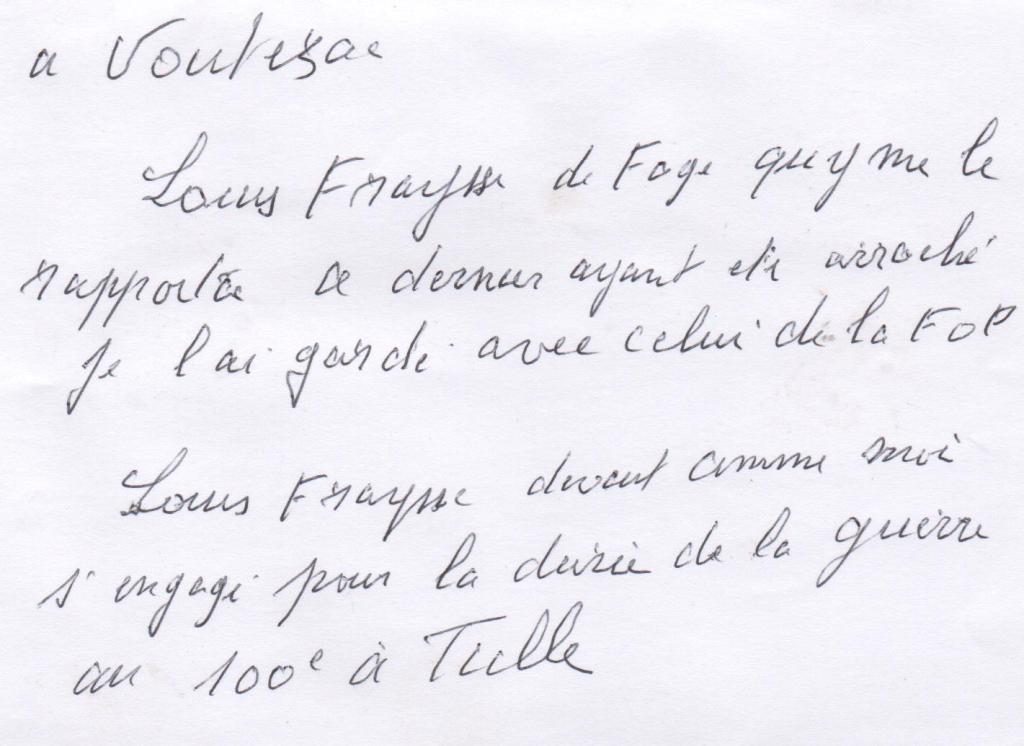 a Voutezac
Louis Fraysse de Foge qu y me le
rapporta ce dernier ayant été arraché
je l'ai gardé avec celui de la FOP
Louis Fraysse devant comme moi
s'engagé pour la durée de la guerre
au 100e à Tulle